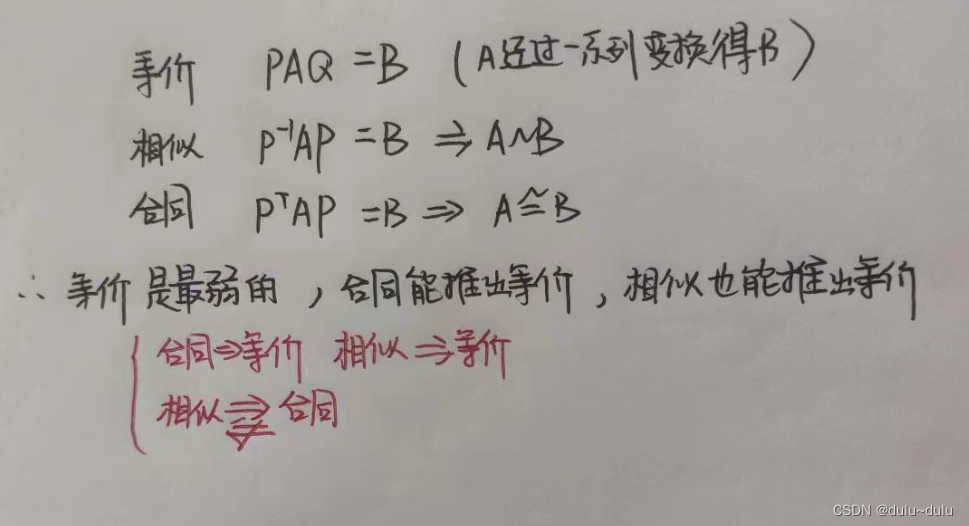 等价 PAQ=B (A经过一系列变换得B)
相似 P⁻¹AP=B ⇒ A∼B
合同 PᵀAP=B ⇒ A≃B
∴ 等价是最弱的，合同能推出等价，相似也能推出等价
合同⇒等价 相似⇒等价
相似⇒⇍合同
CSDN @dulu~dulu